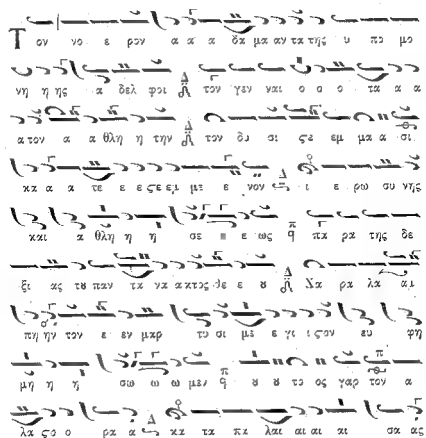 Τον νο ε ρον α α α δα μα αν τα της υ πο μο
νη η ης α δελ φοι τον γεν ναι ο ο ο τα α α
α τον α α θλη η την τον δυ σι ϛε εμ μα α σι
κα α α τε ε ε ϛε εμ με ε νον ι ε ρω συ νης
και α θλη η η σε ε ε ως πα ρα της δε
ξι ας τȣ παν τα να α κτος θε ε ȣ Χα ρα λα αμ
πη ην τον ε εν μαρ τυ σι με ε γι ιϛον ευ φη
μη η η σω ω ω μεν ȣ ȣ το ος γαρ τον α
λα ϛο ο ρα α κα τα πα λαι αι αι αι σα ας